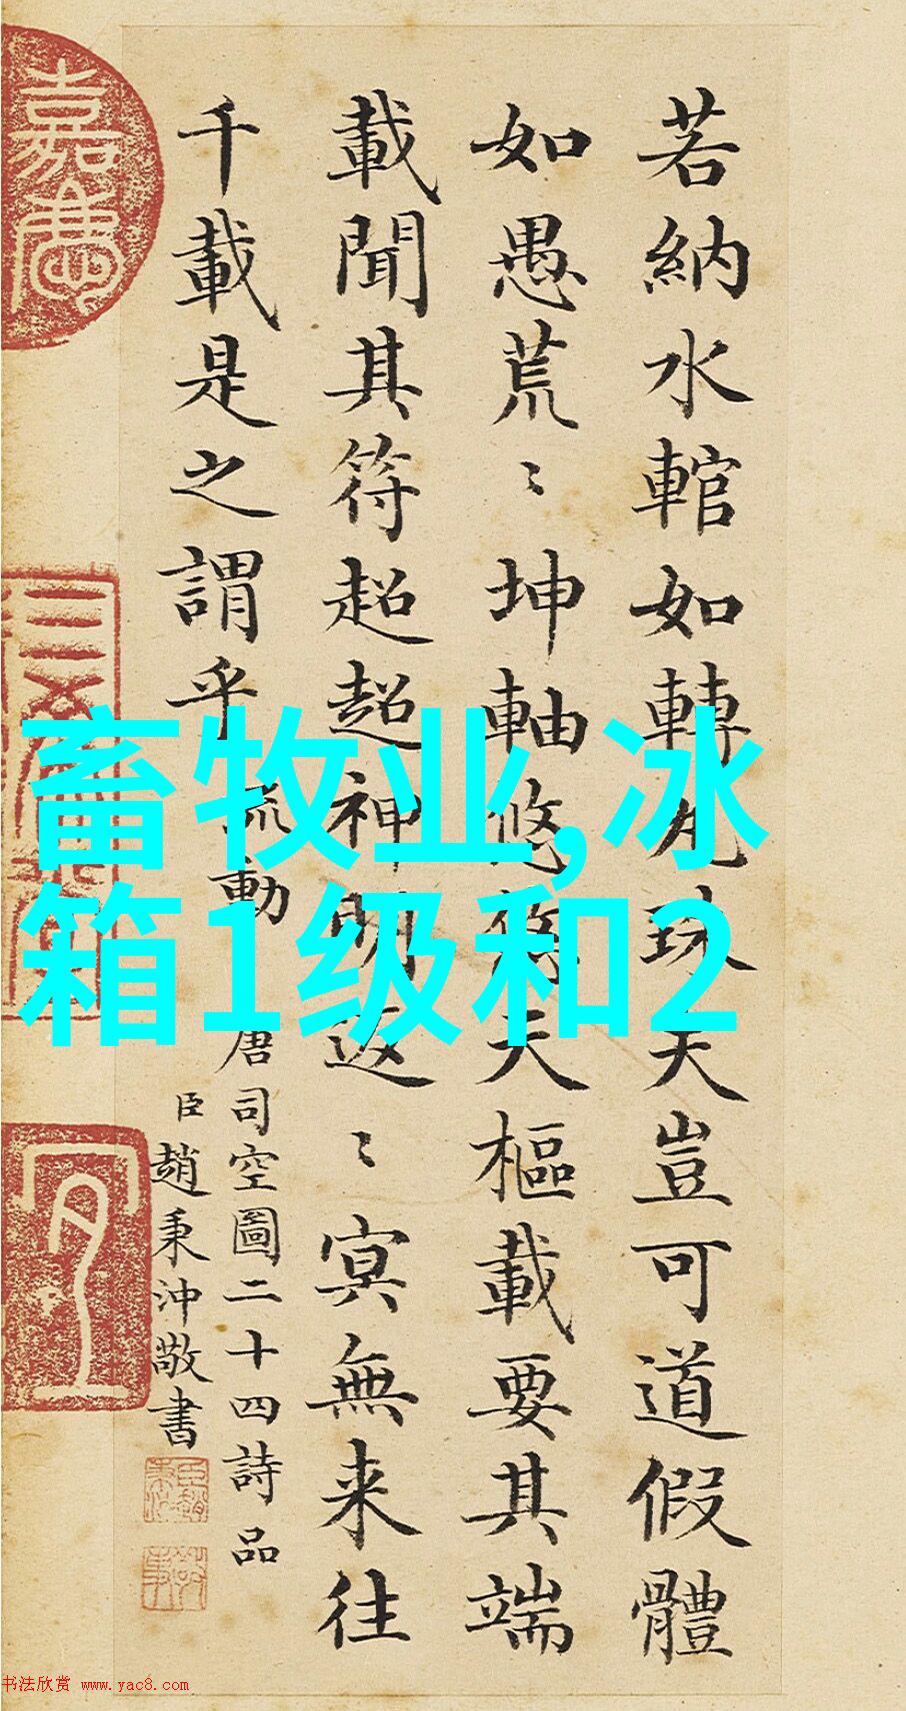 若納水輨如轉丸珠夫豈可道假體
如愚荒〻坤軸悠悠天樞載要其端
載聞其符超超神明返〻冥無来往
千載是之謂乎
流動 唐司空圖二十四詩品
臣趙秉沖敬書
嘉慶
畜牧业,冰
箱1级和2
书法欣赏 www.yac8.com